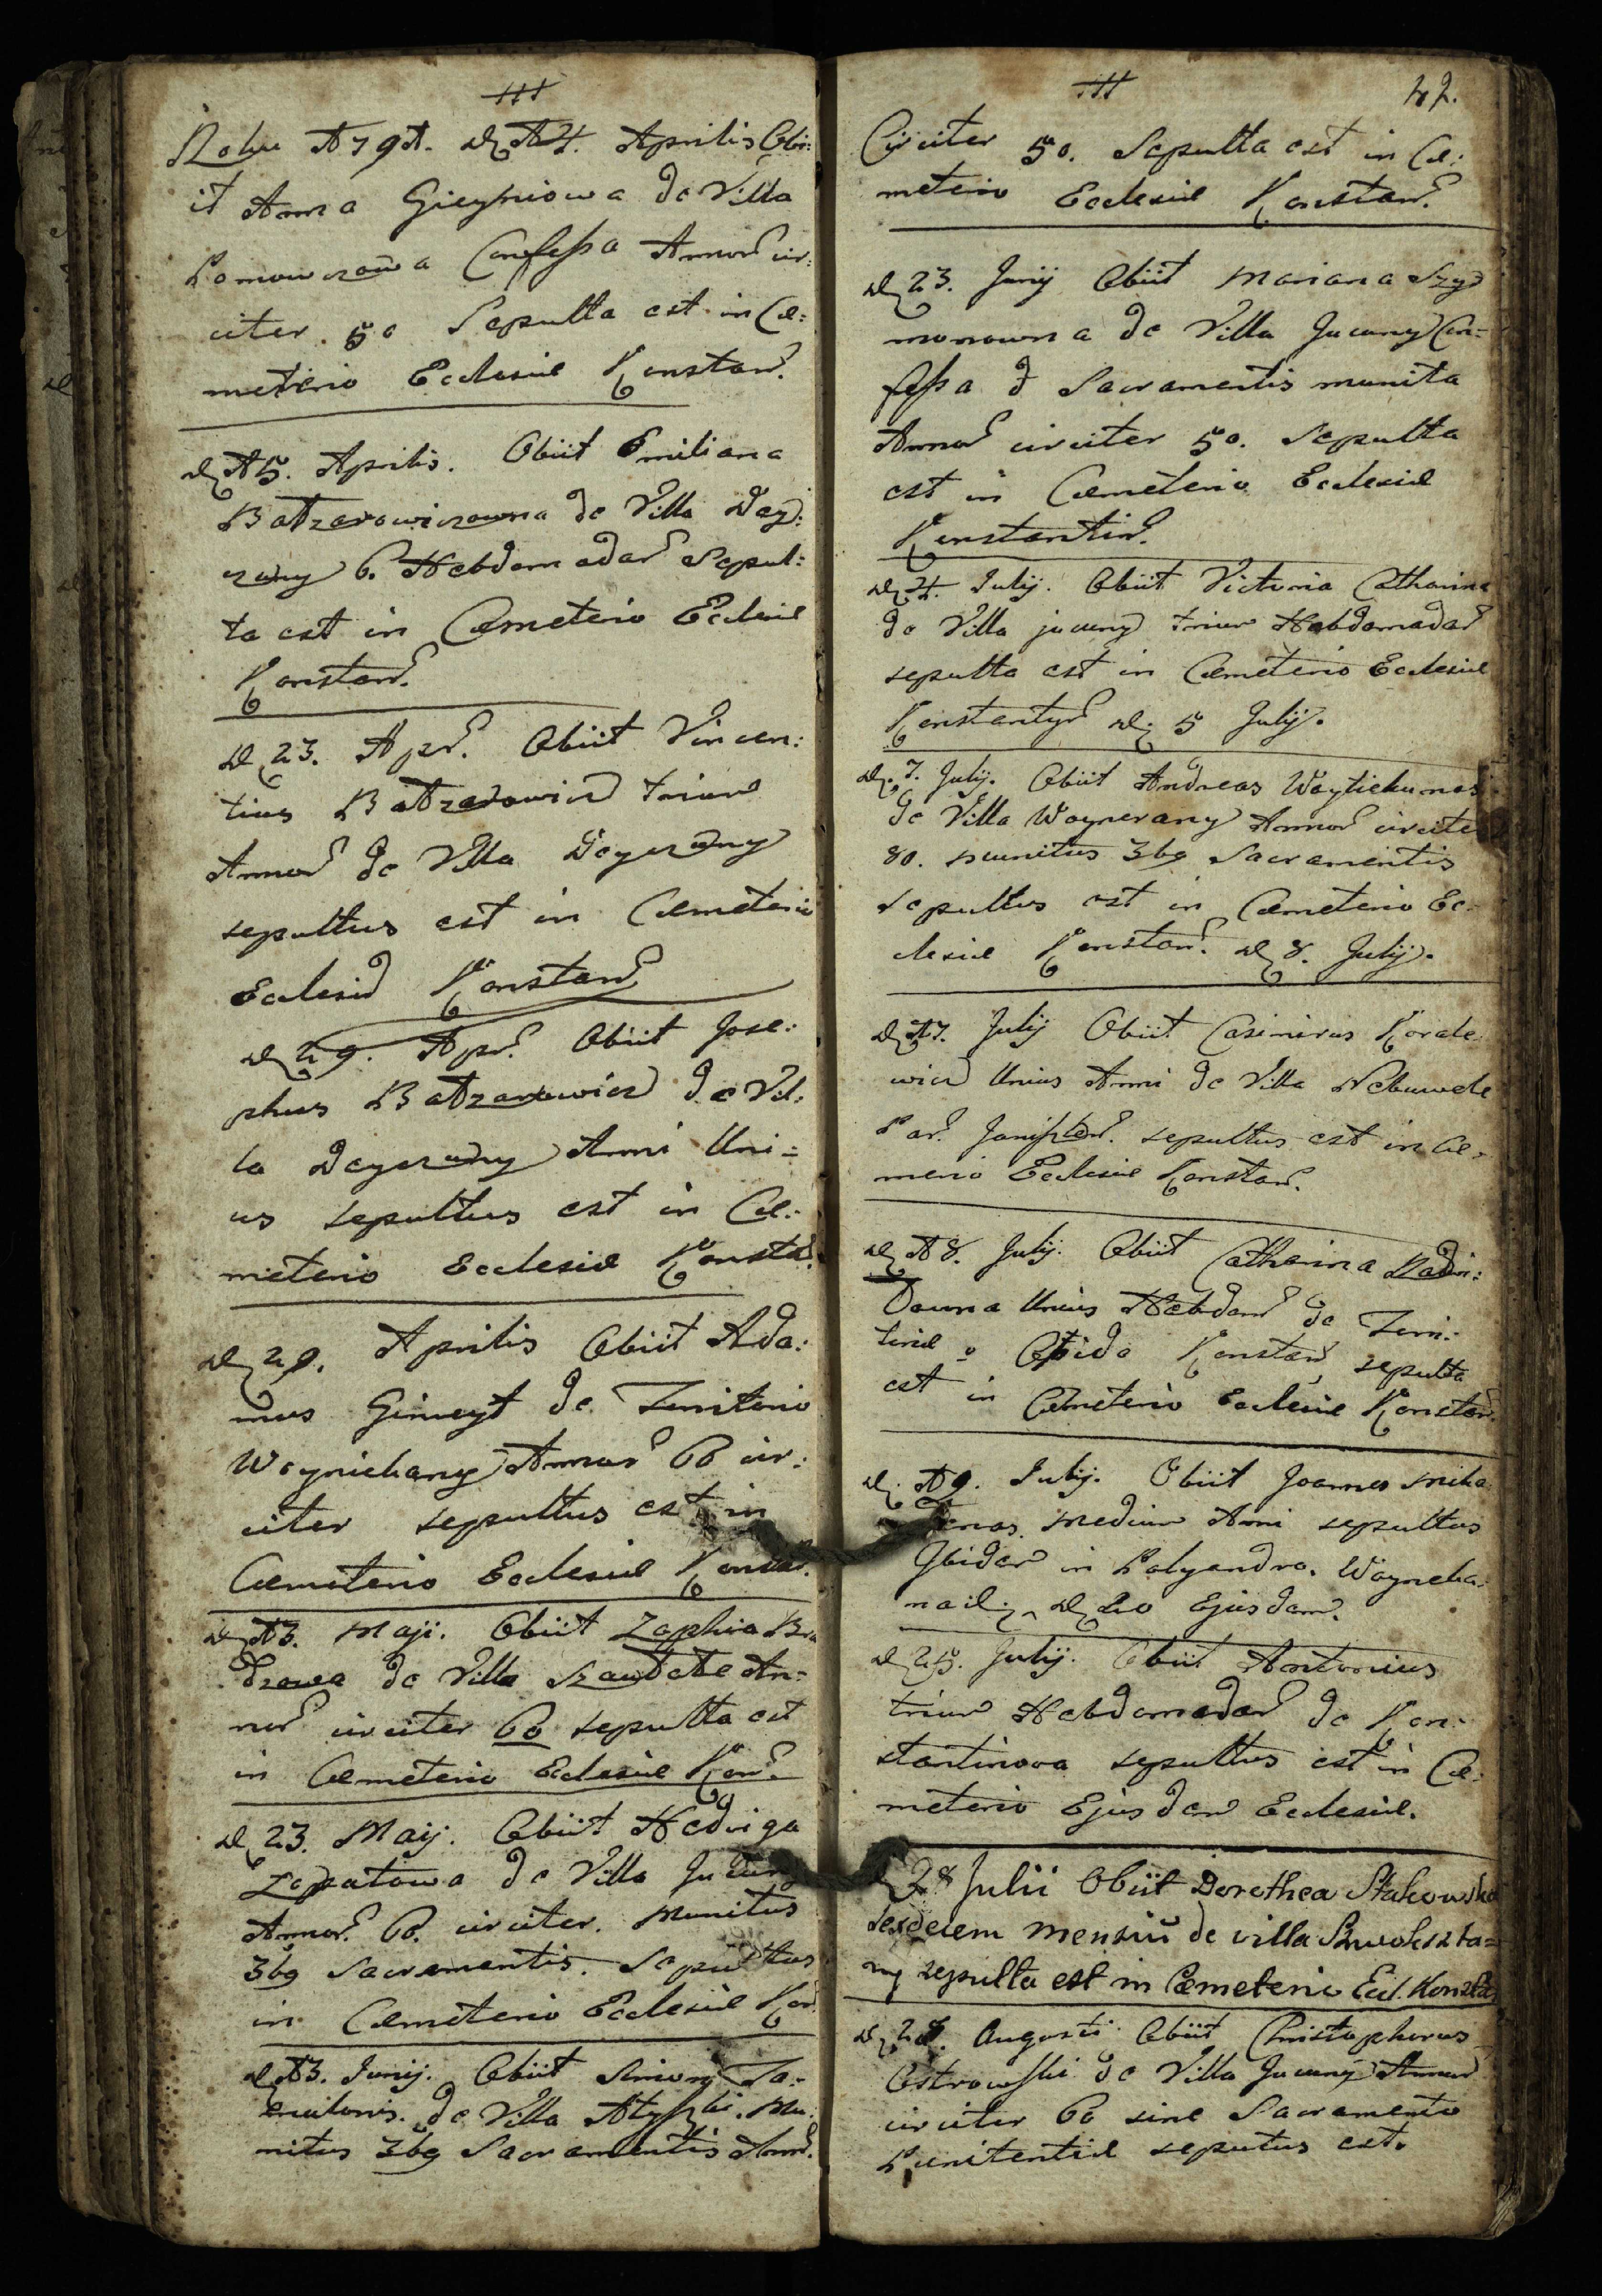 Roku 1791. D 14. Aprilis Obi:
it Anna Gieyniowa de Villa
Pomowszowa Confessa Annor cir:
citer 50 Sepulta est in Cæ:
meterio Ecclesiæ Konstan.
D 15. Aprilis. Obiit Emiliana
Batzarowiczowna de Villa Dey:
czuny 6. Hebdomadar Sepul:
ta est in Cæmeterio Ecclesiæ
Konstan.
D 23. Apr. Obiit Vincen:
tius Batzarowicz trium
Annor de Villa Deyczuny
sepultus est in Cæmeterio
Ecclesiæ Konstan
D 29. Apr. Obiit Jose:
phus Batzarowicz de Vil:
la Deyczuny Anni Uni=
us sepultus est in Cæ:
meterio Ecclesiæ Konsta
D 29. Aprilis Obiit Ada:
mus Gimeyt de Territorio
Woynichany Annor 60 cir:
citer sepultus est in
Cæmeterio Ecclesiæ Konsta.
D 13. Maji. Obiit Zophia
de Villa An=
nor circiter 60 sepulta est
in Cæmeterio Ecclesiæ Kon.
D 23. Maij. Obiit Hedviga
Lopatowa de Villa Jucuny
Annor. 60. circiter. Munitus
3bq Sacramentis. Sepultus
in Cæmeterio Ecclesiæ Kon
D 13. Junij. Obiit Simon
de Villa Mu:
nitus 3bq Sacramentis Annor.
42.
Circiter 50. Sepulta est in Cæ:
meterio Ecclesiæ Konstan.
D 23. Junij Obiit Mariana Szy
monowna de Villa Jucuny Con=
fessa & Sacramentis munita
Annor circiter 50. Sepulta
est in Cæmeterio Ecclesiæ
Konstantin.
D 4. Julij. Obiit Victoria Catharina
de Villa jucuny trium Hebdomadar
sepulta est in Cæmeterio Ecclesiæ
Konstantyn D. 5 Julij.
D. 7. Julij. Obiit Andreas Woytiekunas
de Villa Woynerany Annor circite
80. munitus 3bq Sacramentis
sepultus est in Cæmeterio Ec=
clesiæ Konstan. D 8. Julij.
D 17. Julij Obiit Casimirus Korale
wicz Unius Anni de Villa
Par. sepultus est in Cæ=
merio Ecclesiæ Konstan.
D 18. Julij. Obiit Catharina Radzi:
Unius Hebdom de
Konstan sepulta
est in Cæmeterio Ecclesiæ Konstan
D. 19. Julij. Obiit Joannes Mika
medium Anni sepultus
Ibidem in Polyandro. Woynicha:
D 20 Ejusdem.
D 25. Julij. Obiit Antonius
trium Hebdomadar de Kon=
stantinova sepultus est in Cæ:
meterio Ejusdem Ecclesiæ.
D 28 Julii Obiit Dorothea Stakowska
sexdecem Mensiū de villa
ny sepulta est in Cæmeterio Eccl. Konsta
D 28. Augusti Obiit Christophorus
Ostrowski de Villa Jucuny Annor
circiter 60 sine Sacramento
Pænitentiæ seputus est.